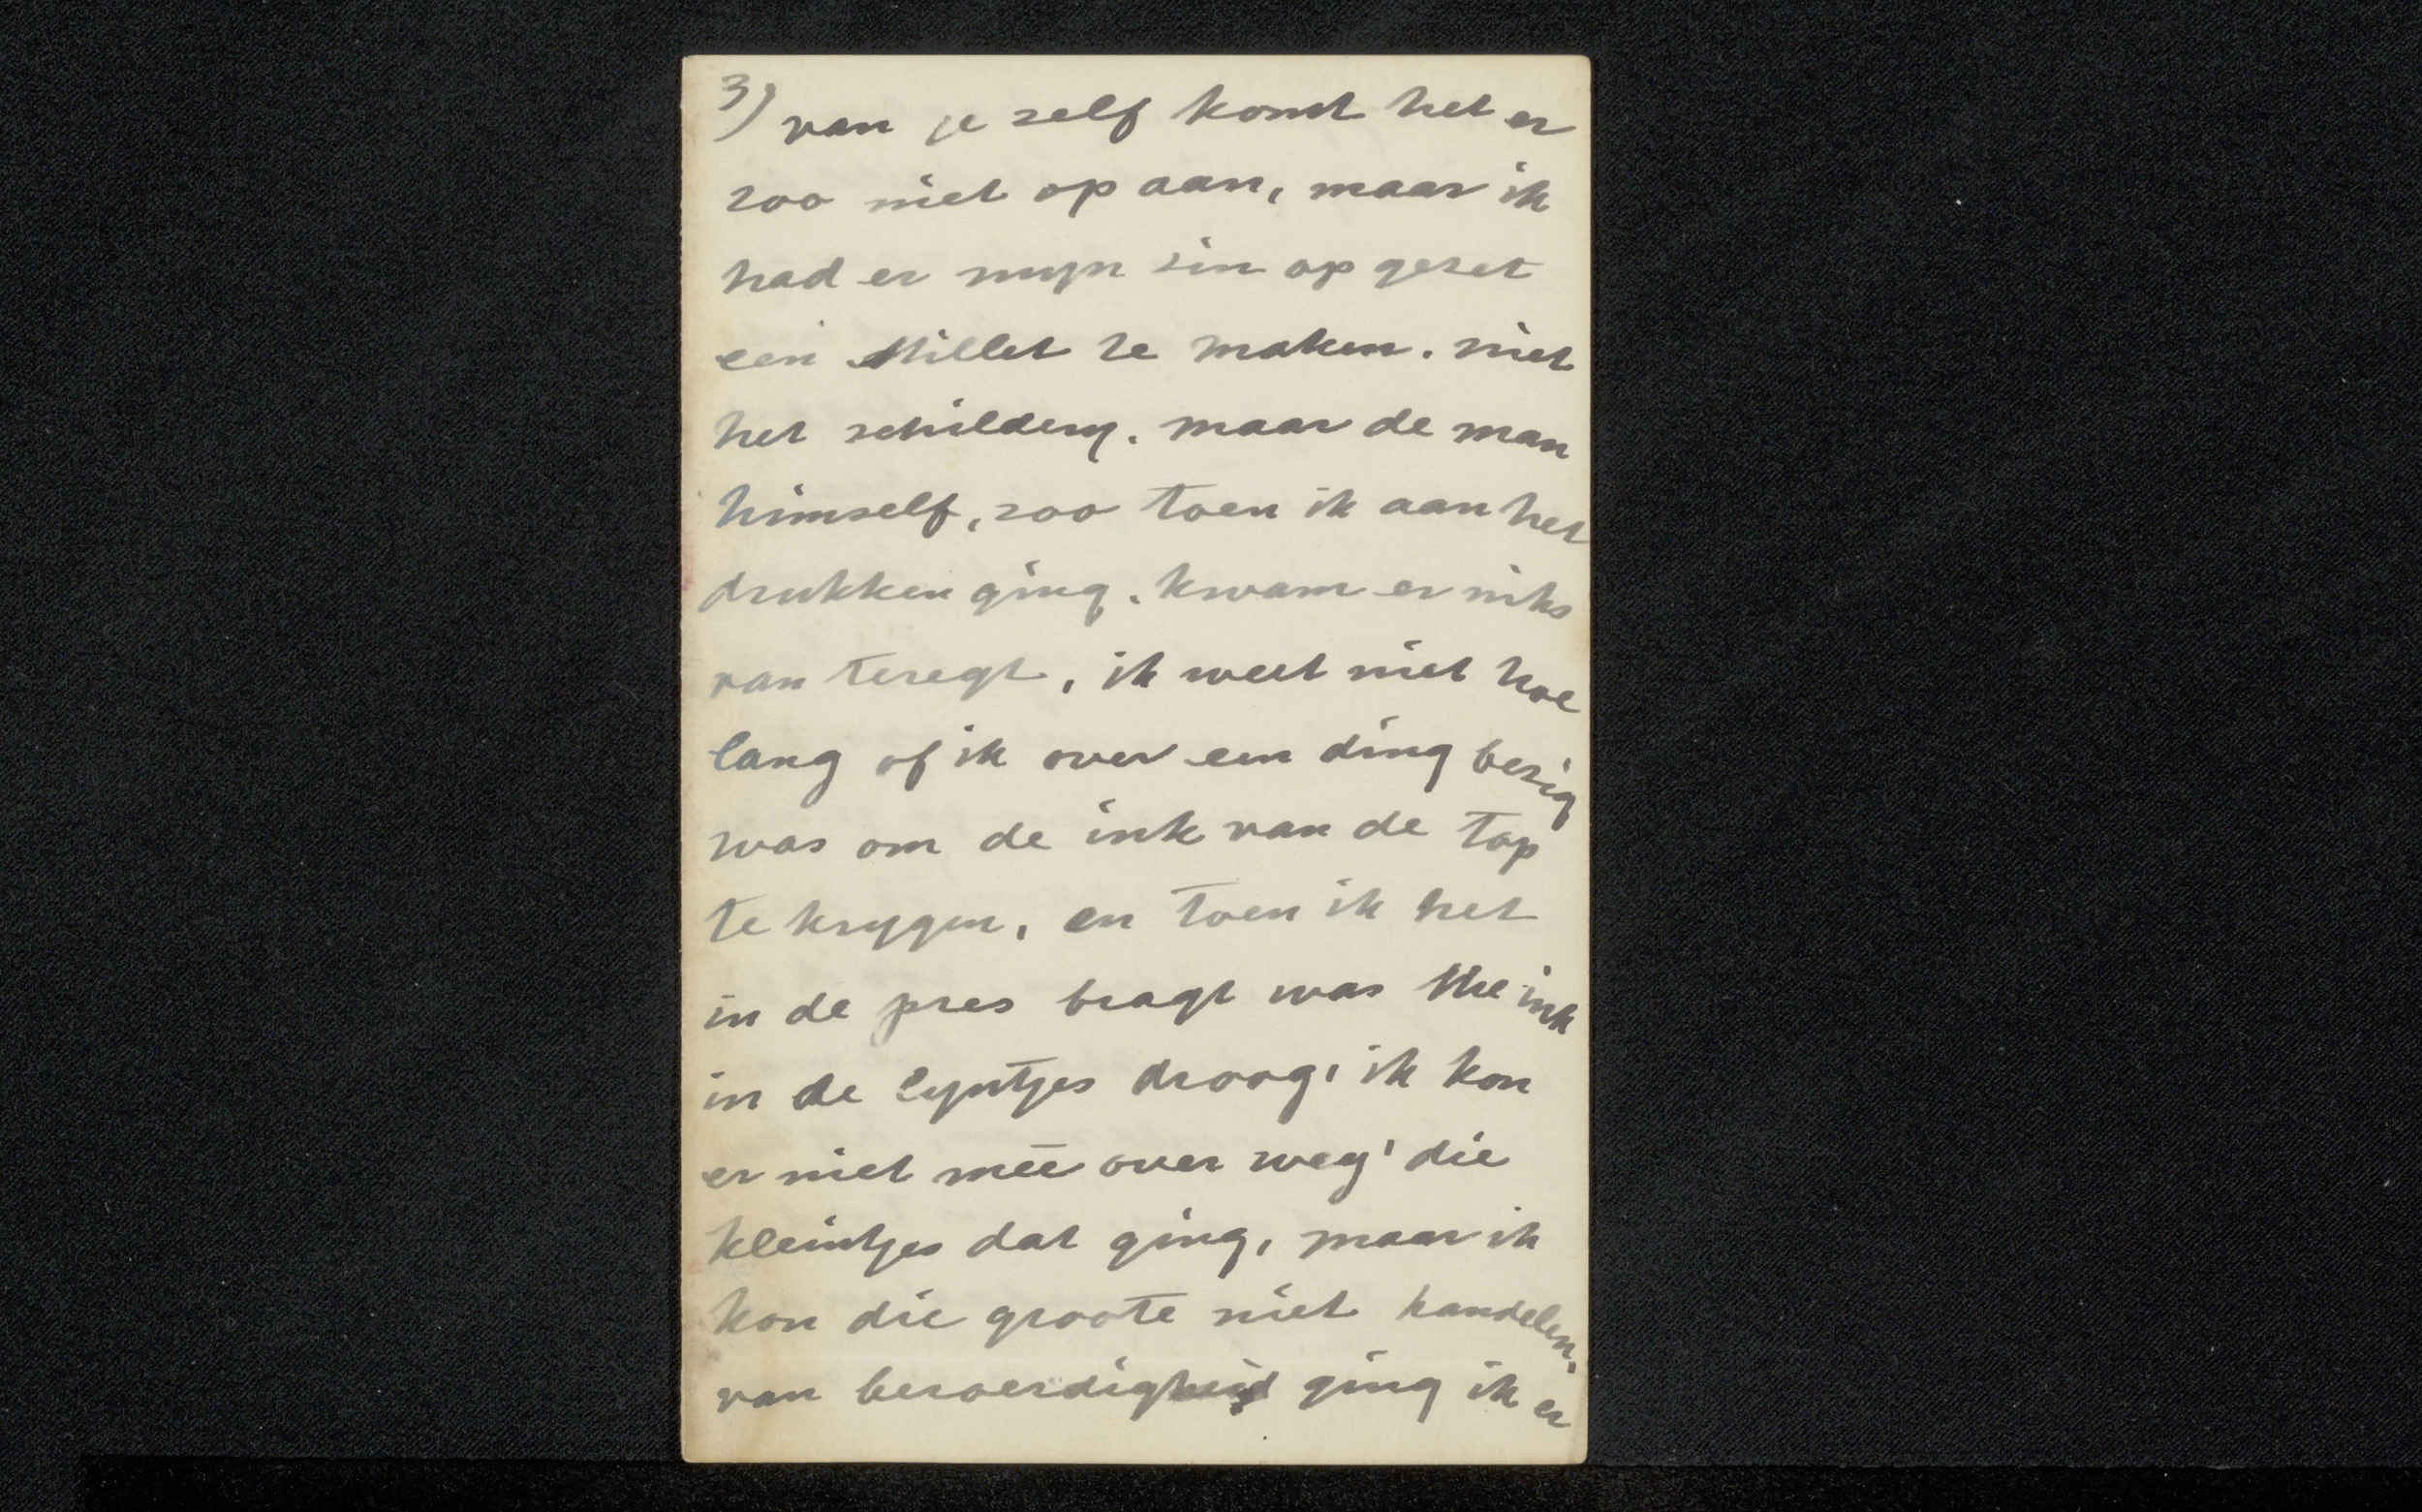 3) van je zelf komt het er
zoo niet op aan, maar ik
had er myn zin op gezet
een Millet te maken. niet
het schildery. maar de man
himself, zoo toen ik aan het
drukken ging. kwam er niks
van teregt, ik weet niet hoe
lang of ik over een ding bezig
was om de ink van de top
te krygen, en toen ik het
in de pres bragt was the ink
in de lyntjes droog, ik kon
er niet meê over weg' die
kleintjes dat ging, maar ik
kon die groote niet handelen.
van beroerdigheid ging ik er